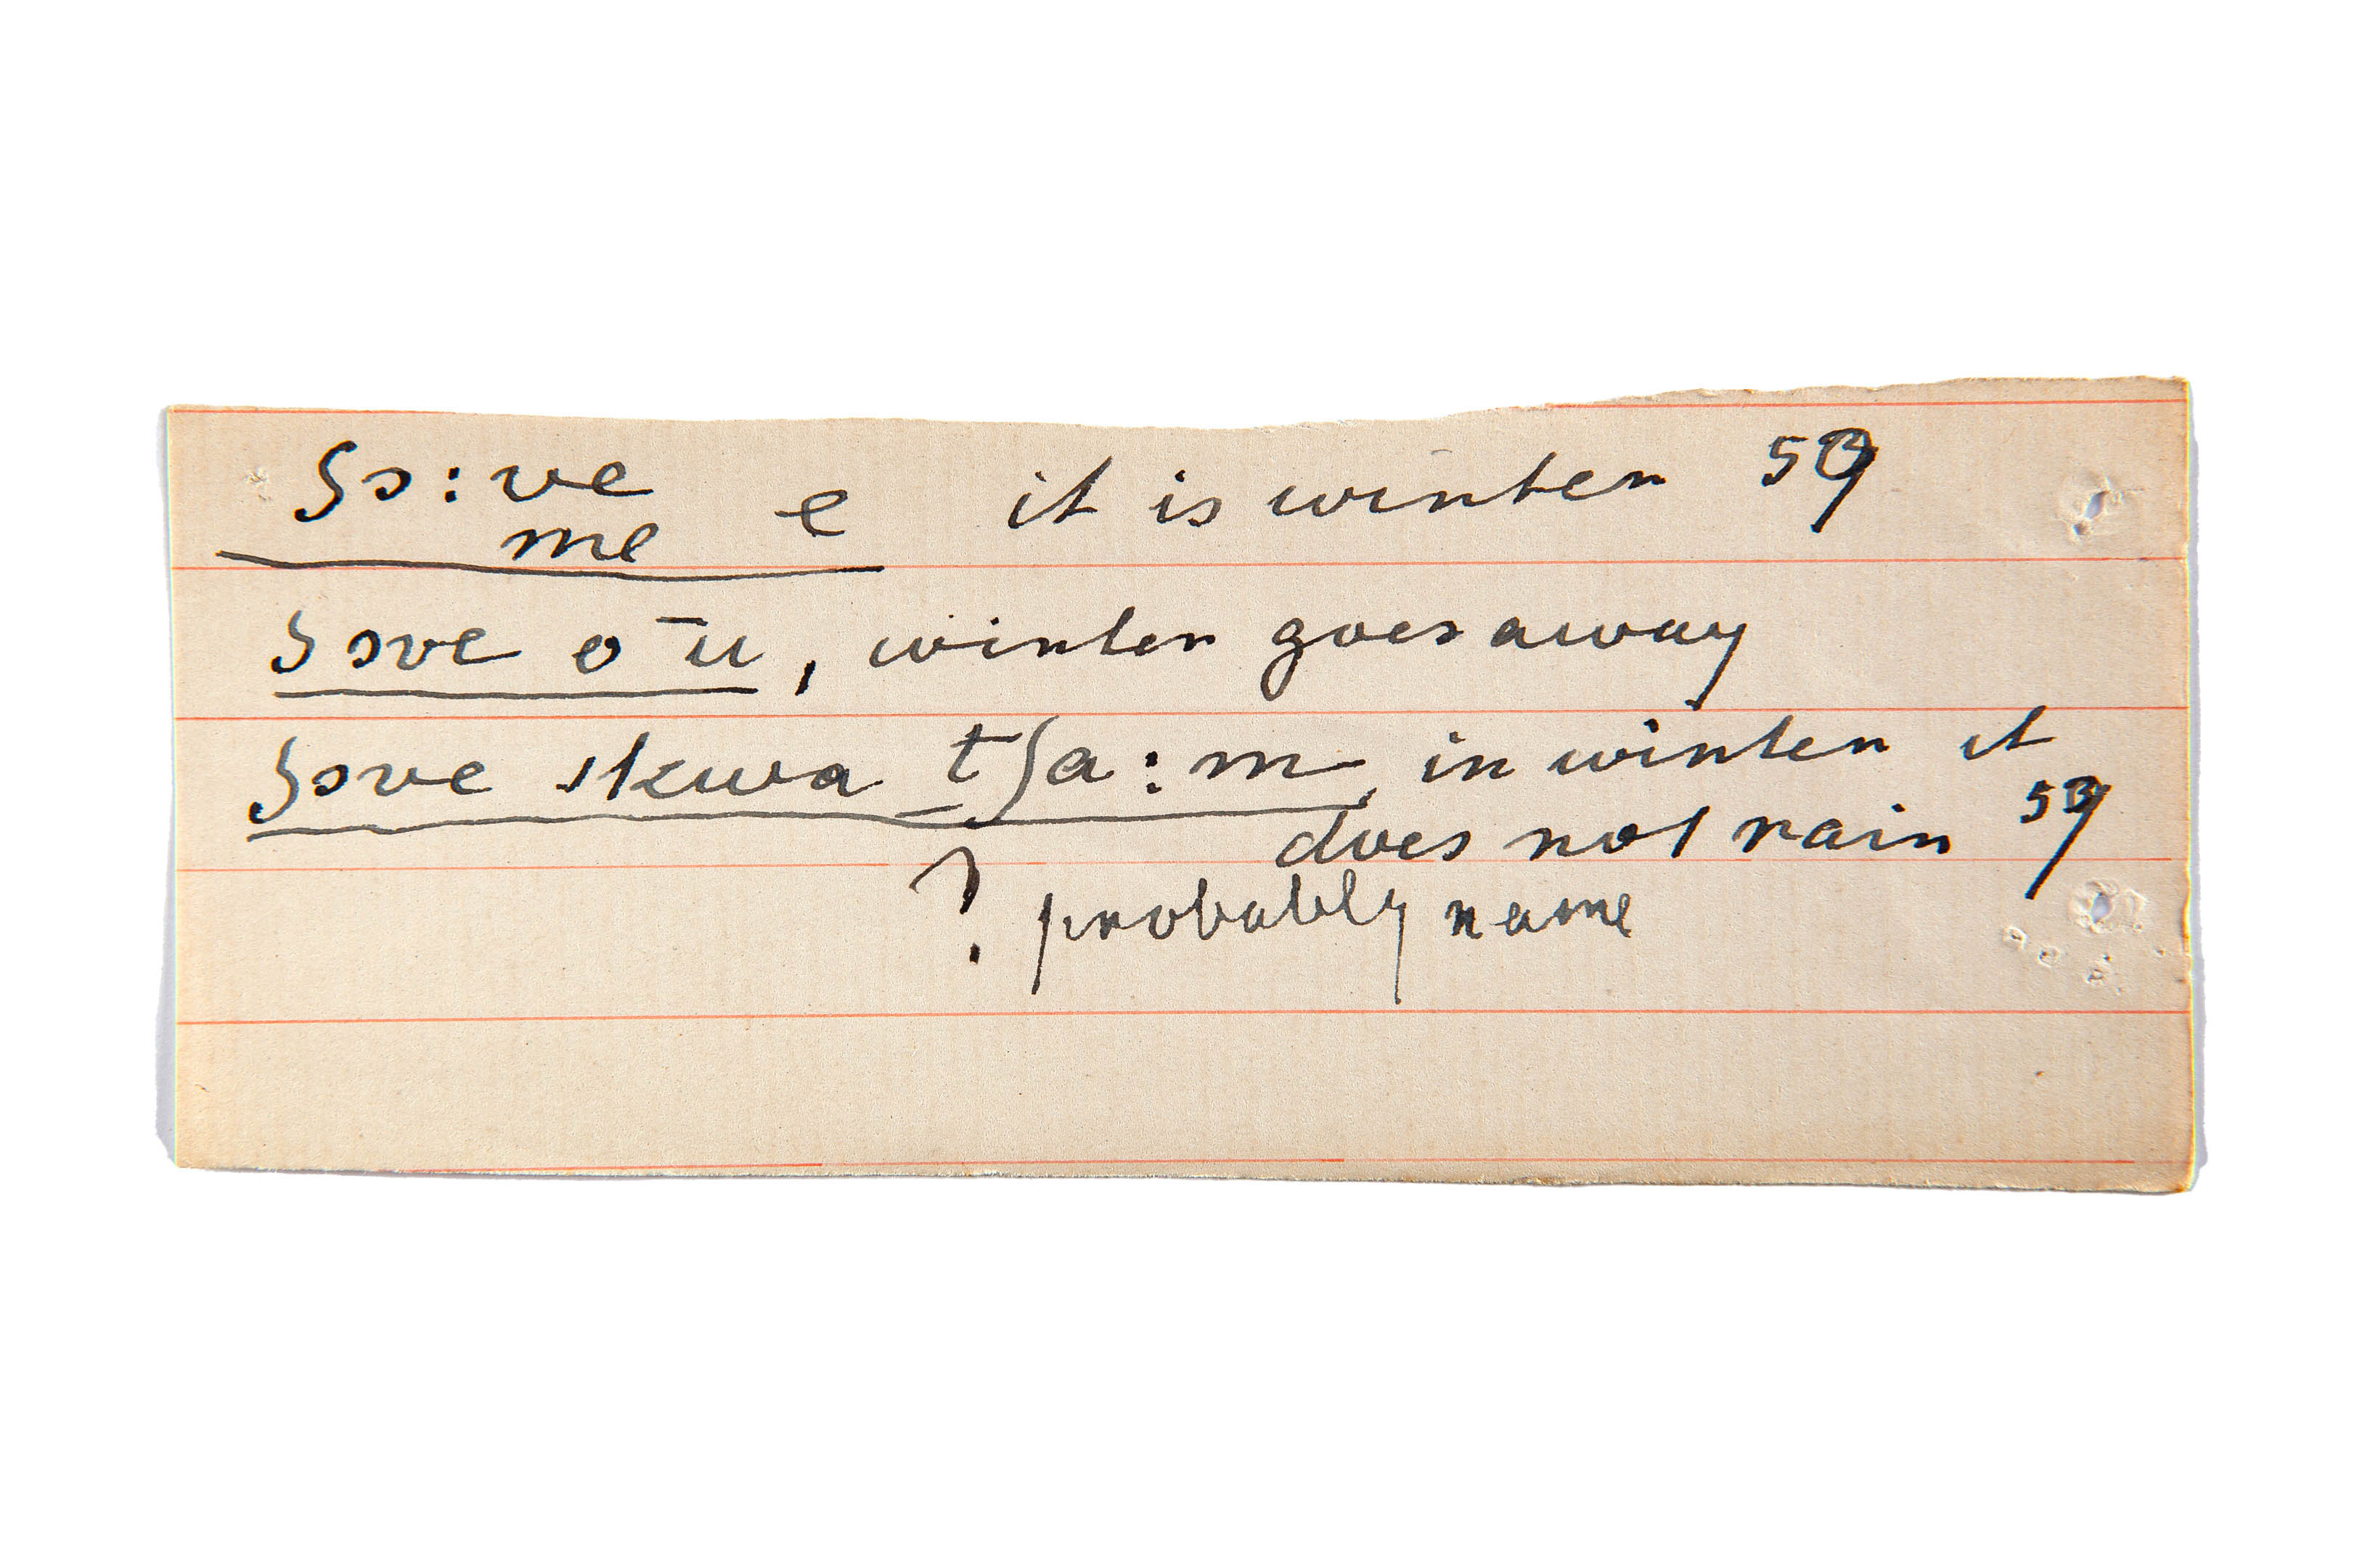 ʃɔ:ve e it is winter 59
me
ʃɔve o ū, winter goes away
ʃɔve skwa tʃa:m, in winter it
does not rain 59
? probably name